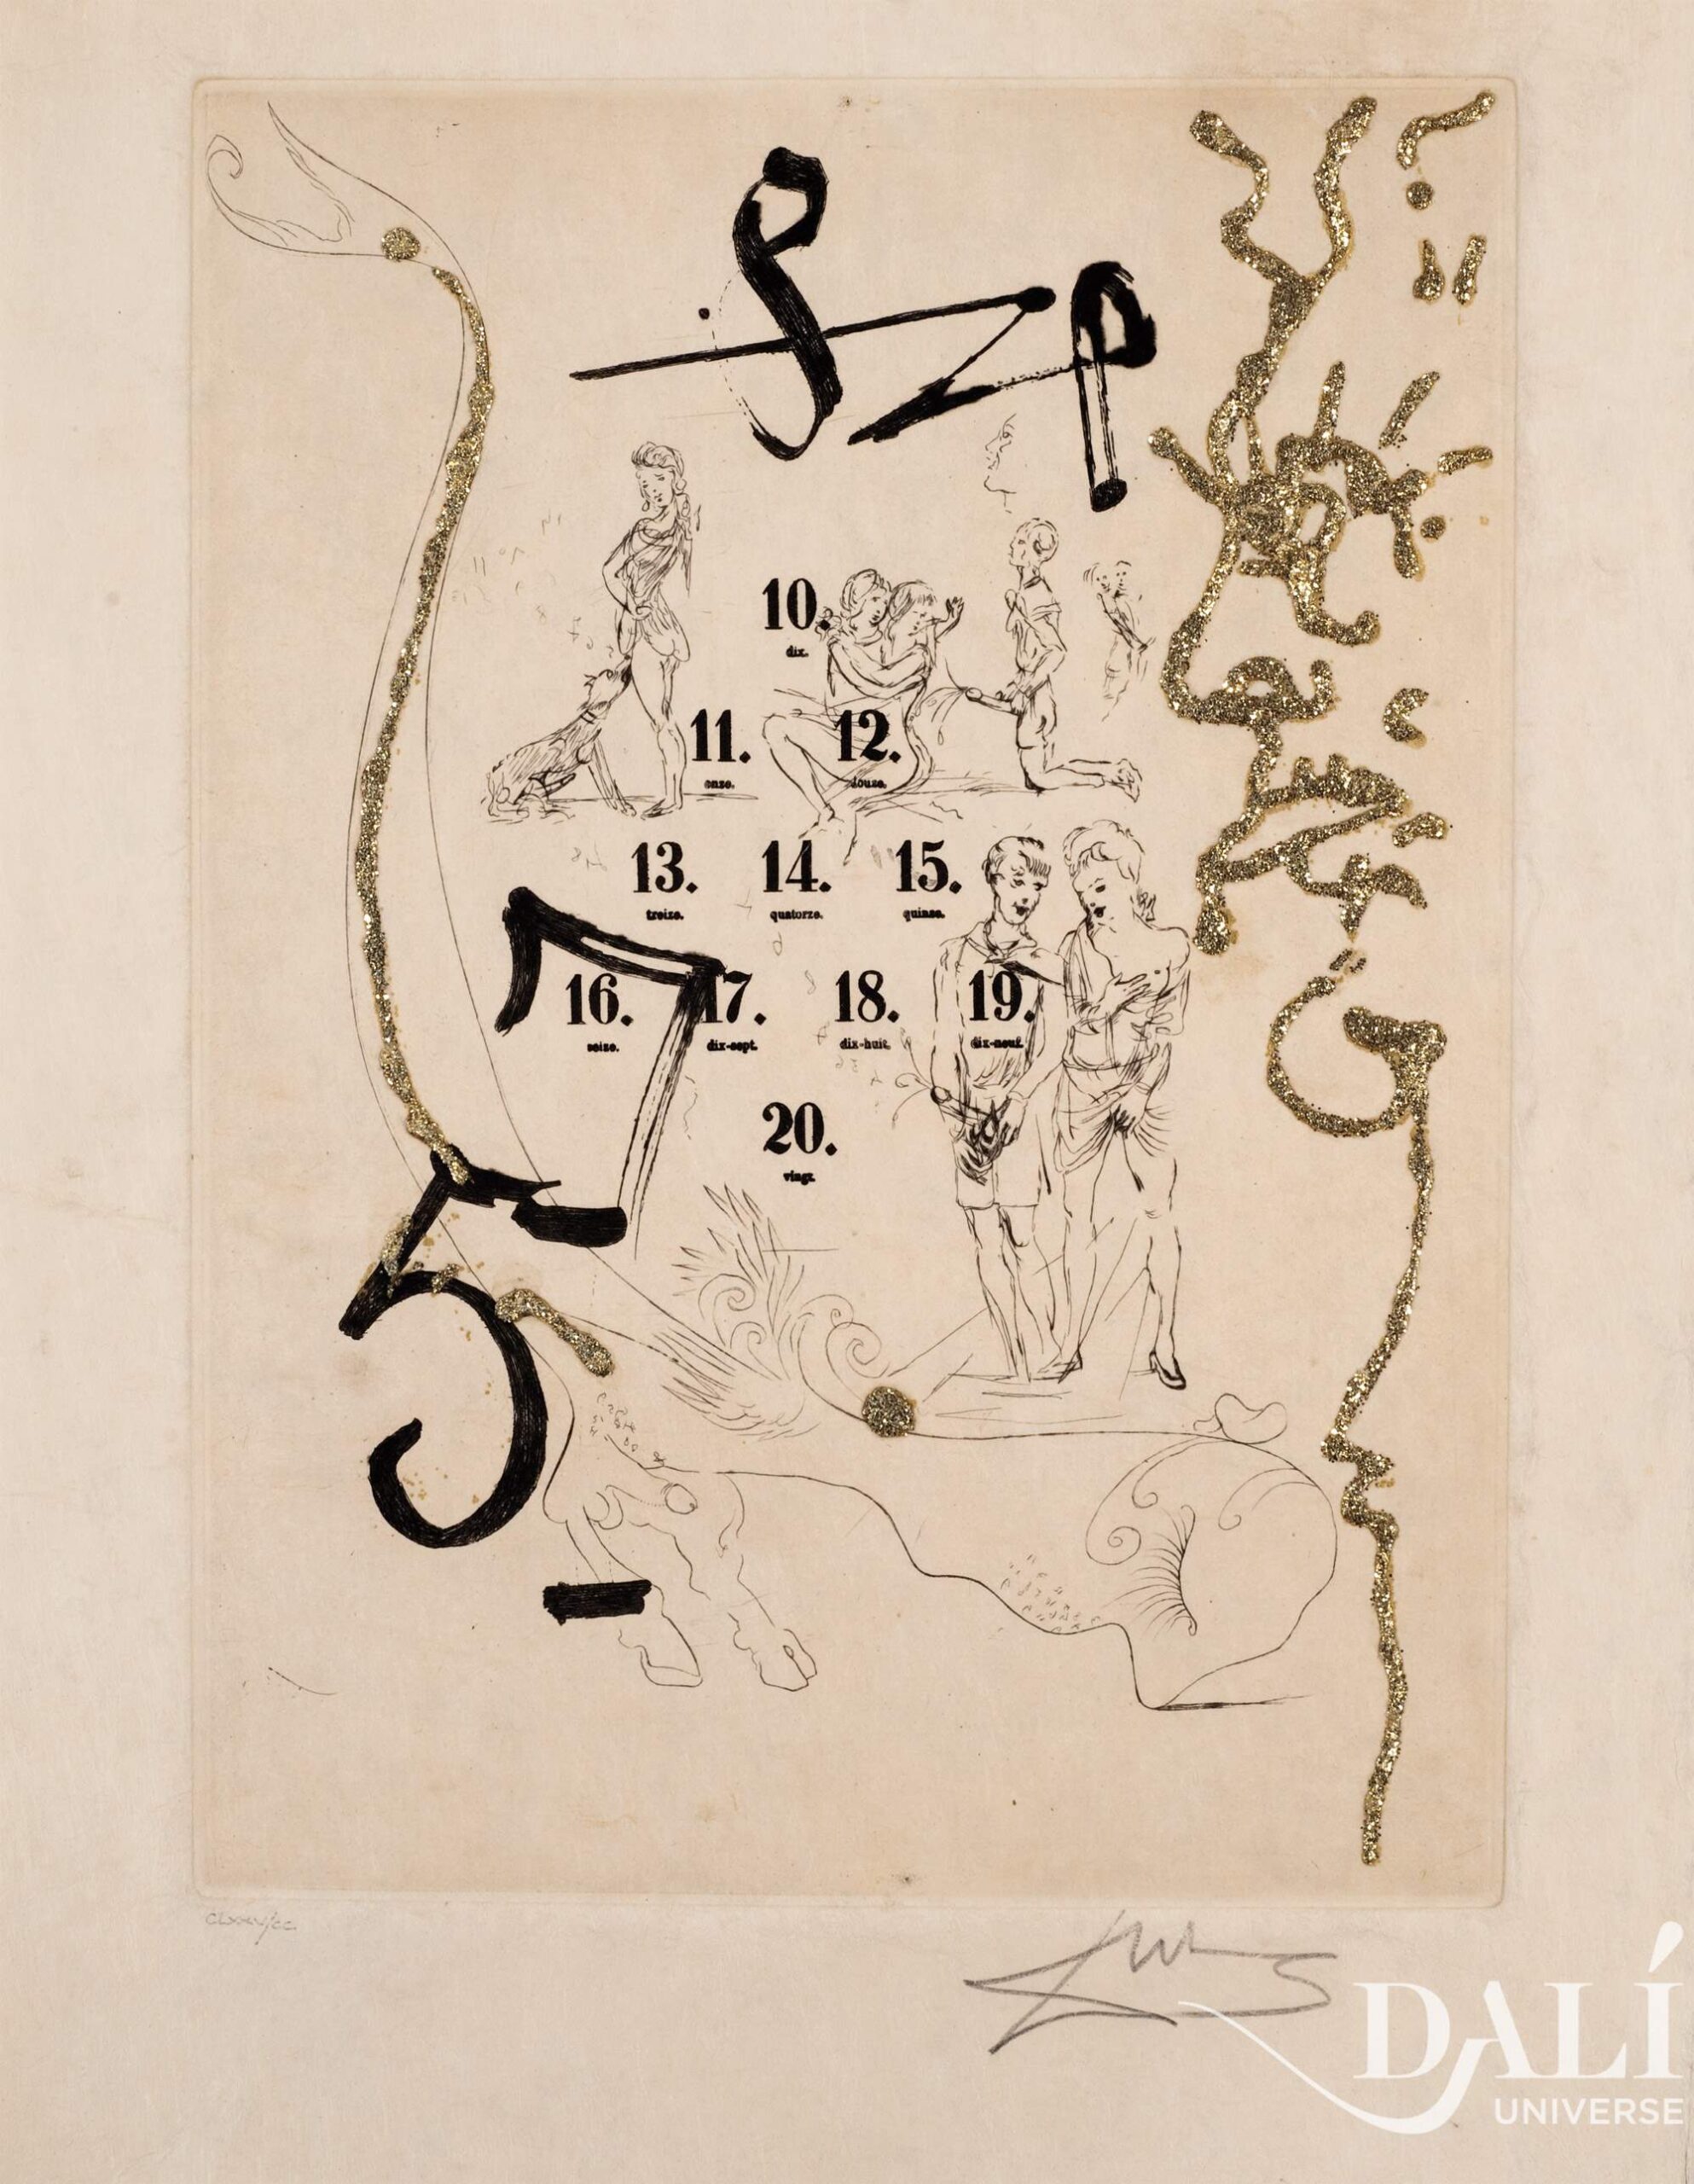 10.
dix.
11. 12.
onze. douze.
13. 14. 15.
treize. quatorze. quinze.
7
16. 17. 18. 19.
seize. dix-sept. dix-huit. dix-neuf.
20.
vingt.
5
DALÍ
UNIVERSE